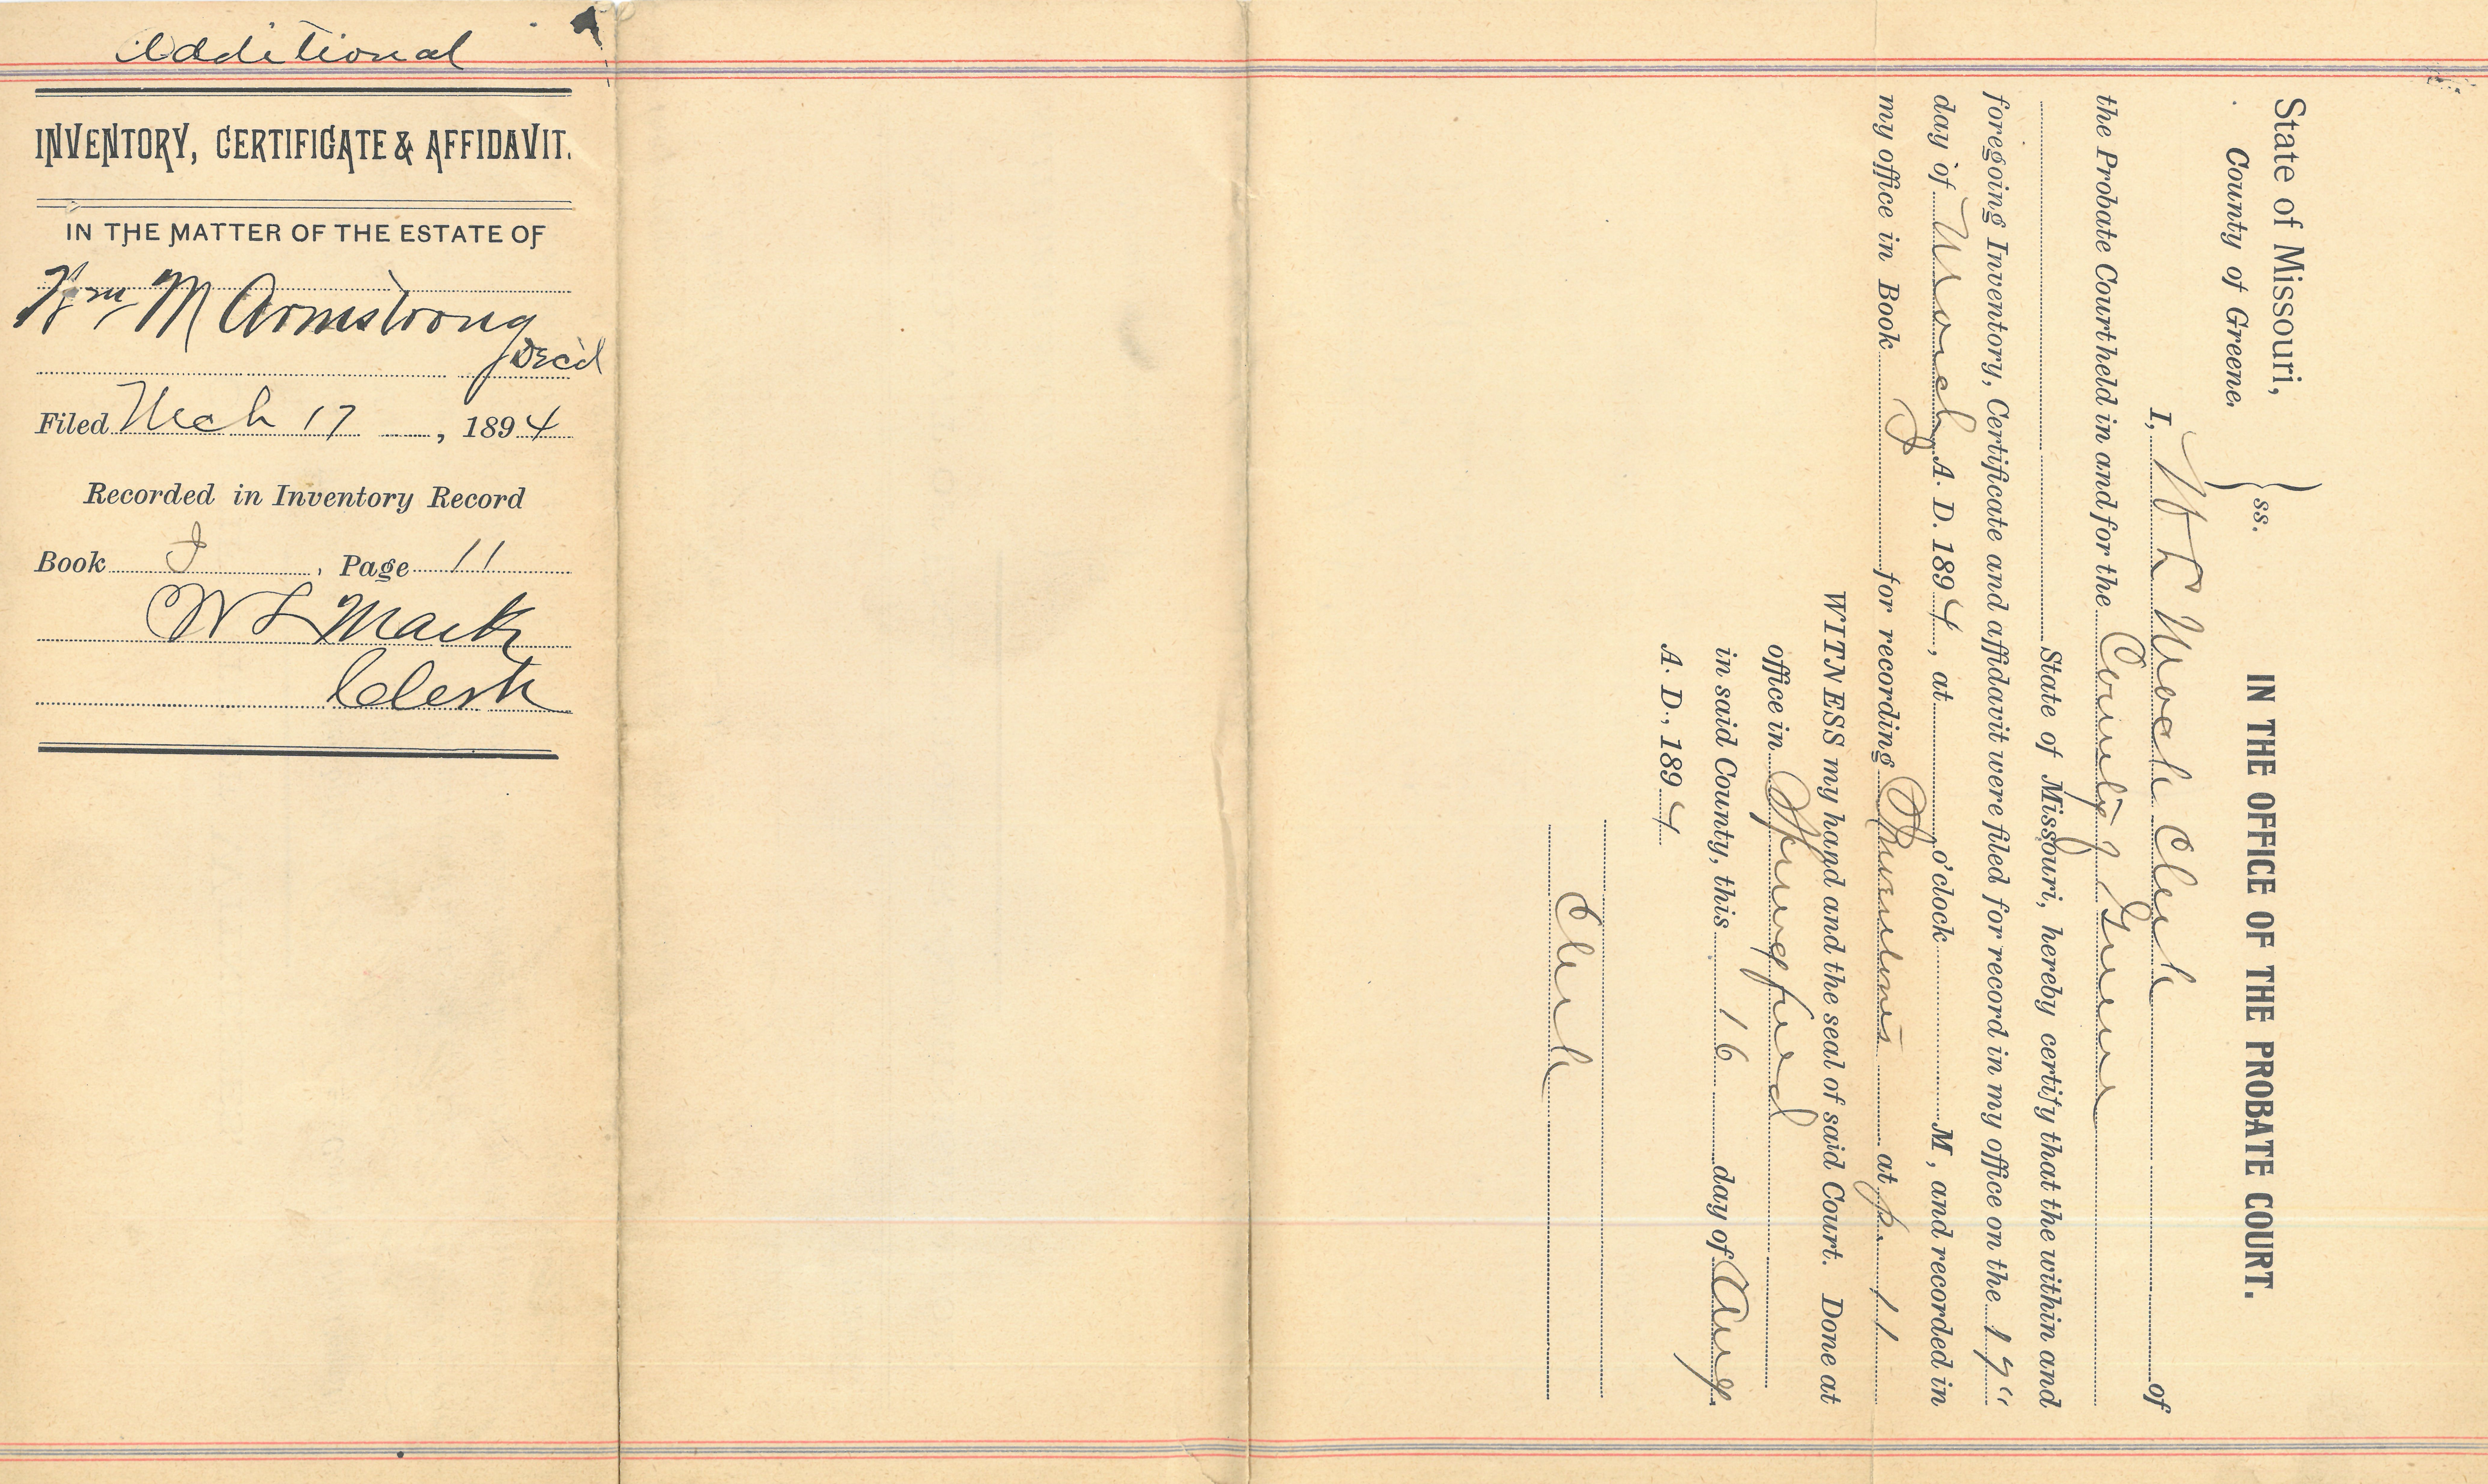 Additional
INVENTORY, CERTIFICATE & AFFIDAVIT.
IN THE MATTER OF THE ESTATE OF
Wm M Armstrong
Dec'd
Filed Mch 17, 1894
Recorded in Inventory Record
Book I, Page 11
W L Mack
Clerk
State of Missouri,
County of Greene. } ss.
IN THE OFFICE OF THE PROBATE COURT.
I, W L Mack Clerk of
the Probate Court held in and for the County of Greene
State of Missouri, hereby certify that the within and
foregoing Inventory, Certificate and affidavit were filed for record in my office on the 17"
day of March A. D. 1894, at o'clock M, and recorded in
my office in Book I for recording Inventories at p. 11
WITNESS my hand and the seal of said Court. Done at
office in Springfield
in said County, this 16 day of Aug.
A. D., 1894
Clerk